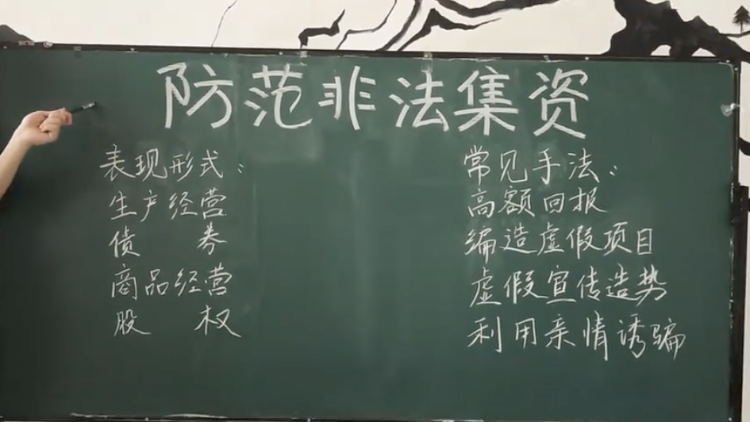 防范非法集资
表现形式:
生产经营
债 券
商品经营
股 权
常见手法:
高额回报
编造虚假项目
虚假宣传造势
利用亲情诱骗